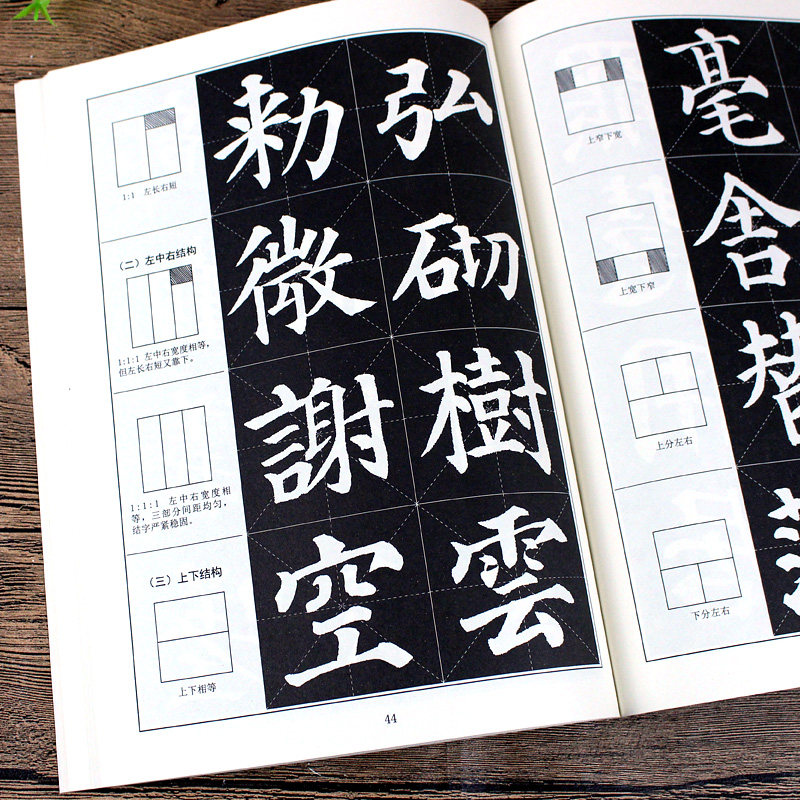 勑弘
1:1 左长右短
(二)左中右结构
微砌
1:1:1 左中右宽度相等,
但左长右短又靠下。
謝樹
1:1:1 左中右宽度相
等,三部分间距均匀,
结字严紧稳固。
(三)上下结构
空雲
上下相等
44
毫
上窄下宽
舍
上宽下窄
替
上分左右
下分左右